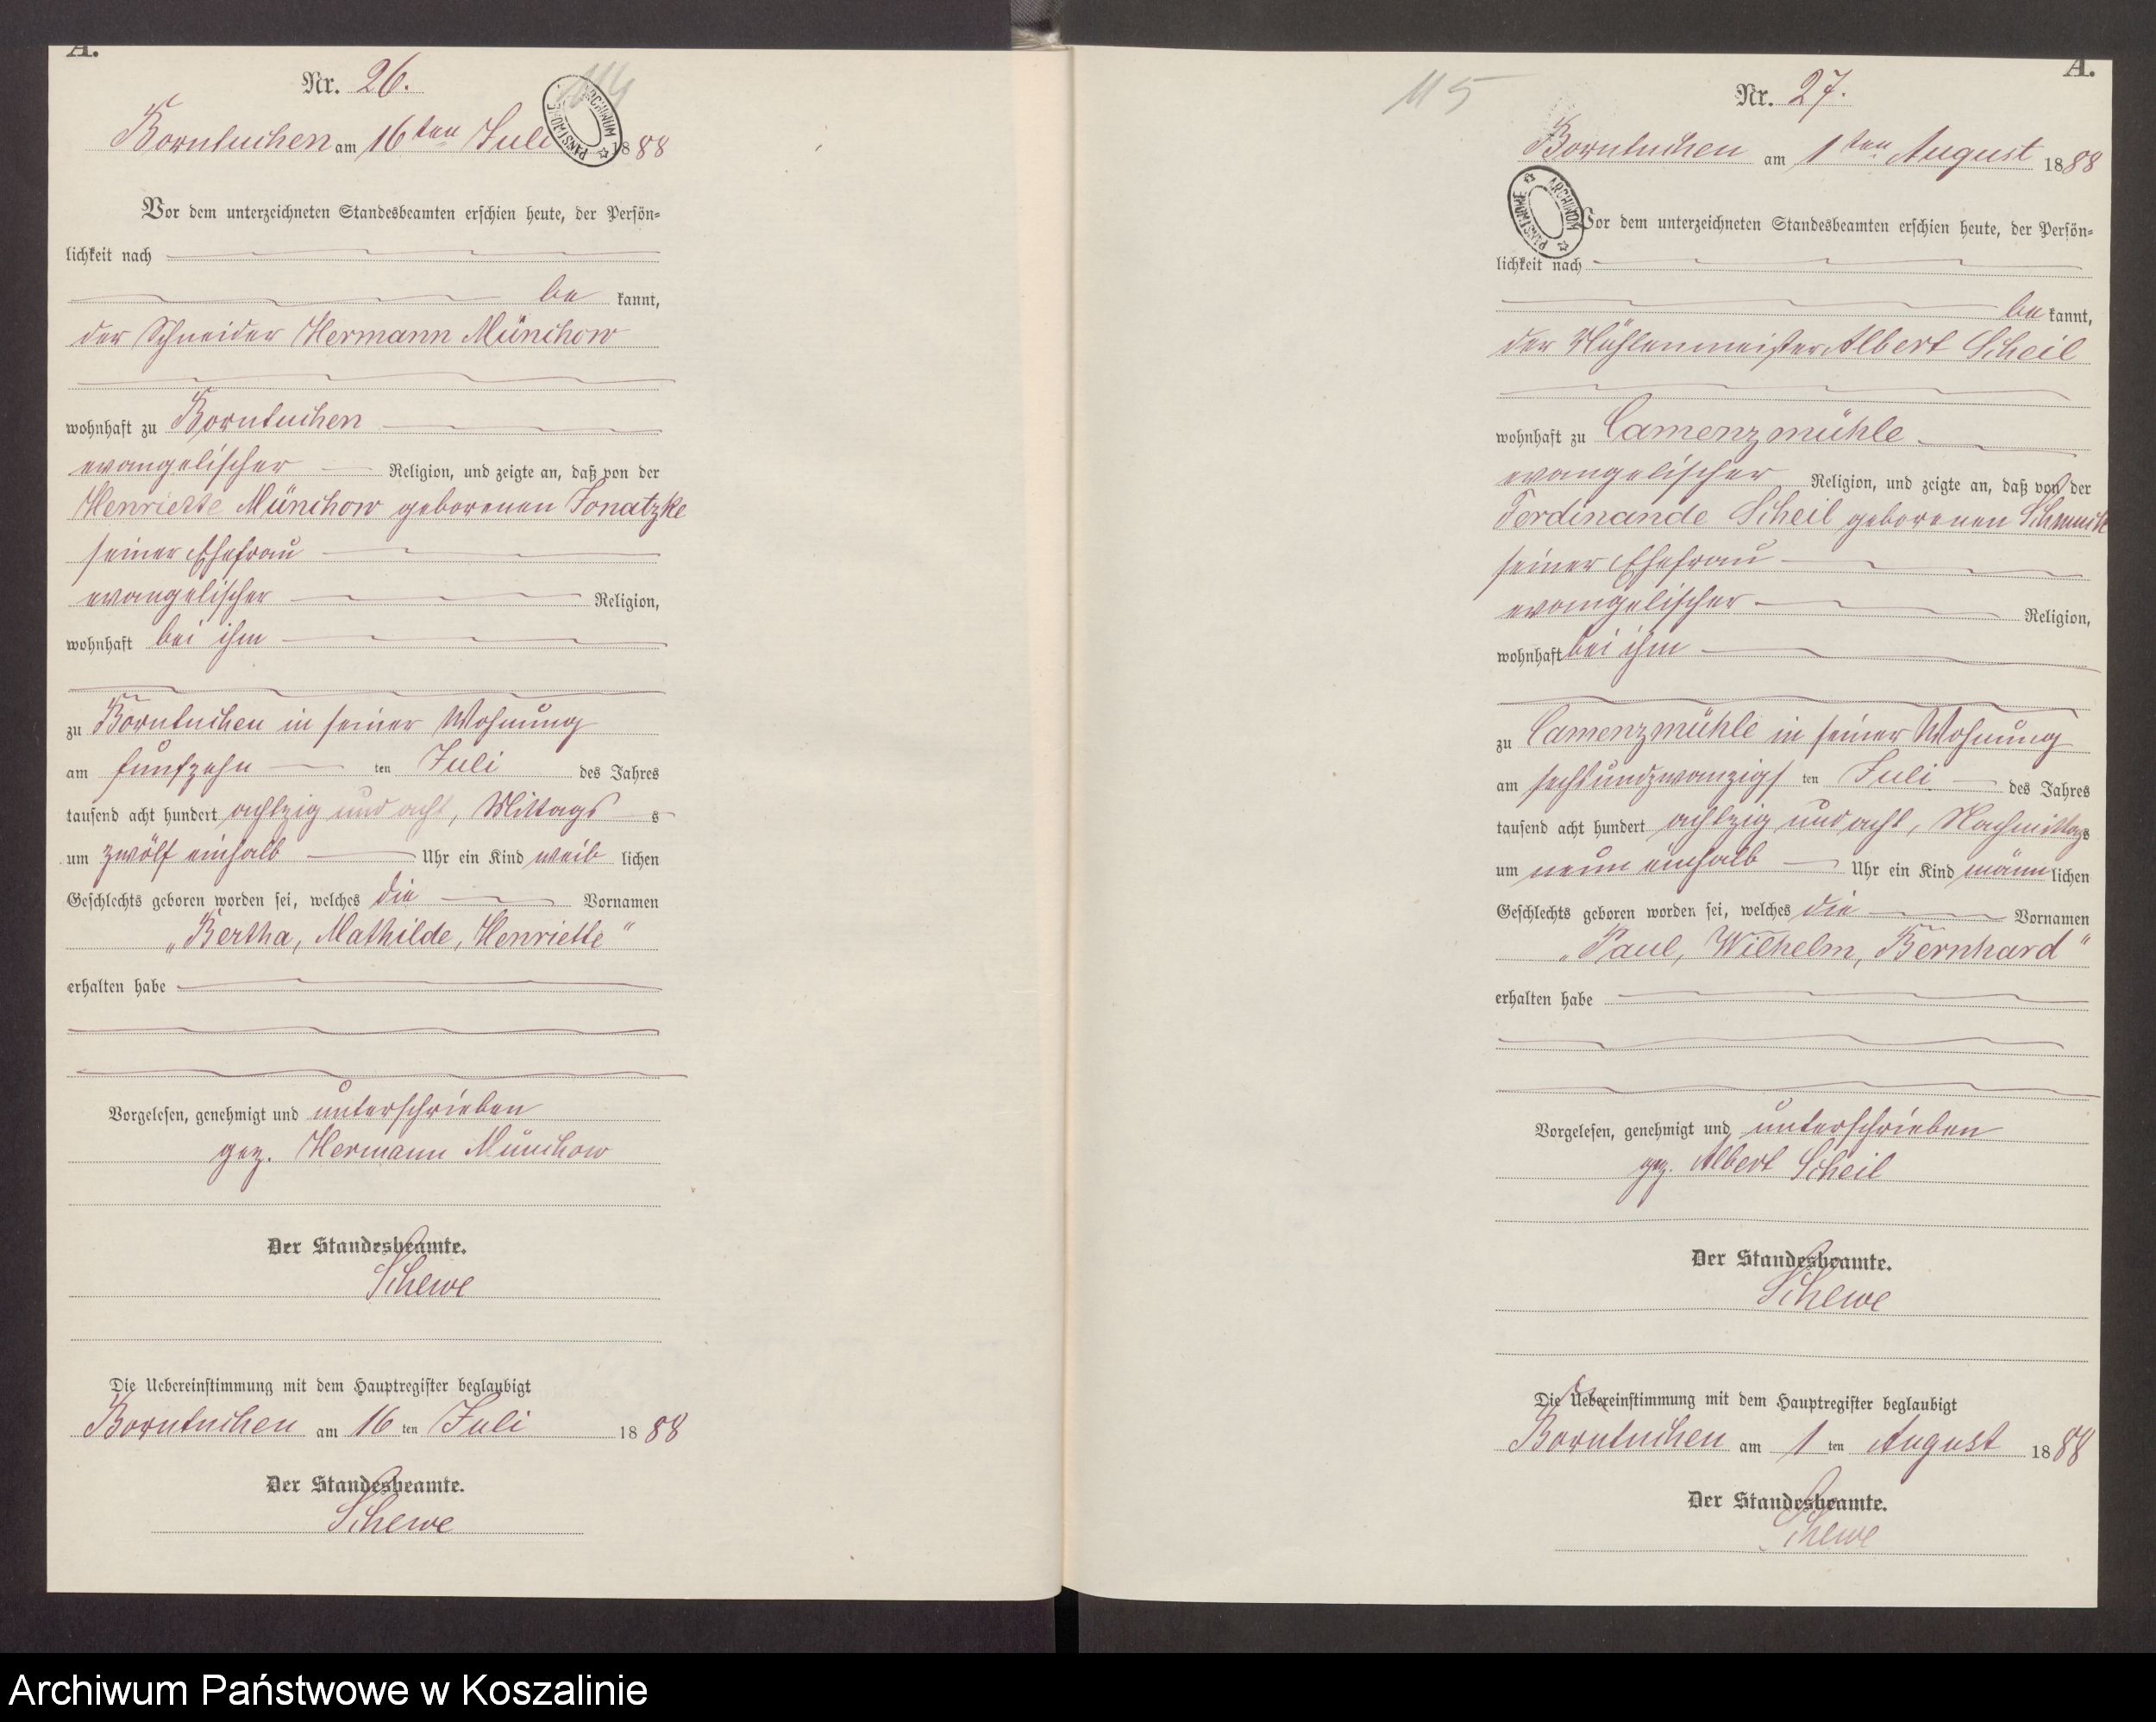 A.
Nr. 26.
114
Borntuchen am 16ten Juli 1888
Vor dem unterzeichneten Standesbeamten erschien heute, der Persön-
lichkeit nach
be kannt,
der Schneider Hermann Münchow
wohnhaft zu Borntuchen
evangelischer Religion, und zeigte an, daß von der
Henriette Münchow geborenen Jonatzke
seiner Ehefrau
evangelischer Religion,
wohnhaft bei ihm
zu Borntuchen in seiner Wohnung
am fünfzehn ten Juli des Jahres
tausend acht hundert achtzig und acht, Mittags s
um zwölf einhalb Uhr ein Kind weib lichen
Geschlechts geboren worden sei, welches die Vornamen
„Bertha, Mathilde, Henriette"
erhalten habe
Vorgelesen, genehmigt und unterschrieben
gez. Hermann Münchow
Der Standesbeamte.
Schewe
Die Uebereinstimmung mit dem Hauptregister beglaubigt
Borntuchen am 16 ten Juli 1888
Der Standesbeamte.
Schewe
ARCHIWUM PAŃSTWOWE
A.
115
Nr. 27.
Borntuchen am 1ten August 1888
ARCHIWUM PAŃSTWOWE
Vor dem unterzeichneten Standesbeamten erschien heute, der Persön-
lichkeit nach
be kannt,
der Mühlenmeister Albert Scheil
wohnhaft zu Camenzmühle
evangelischer Religion, und zeigte an, daß von der
Ferdinande Scheil geborenen
seiner Ehefrau
evangelischer Religion,
wohnhaft bei ihm
zu Camenzmühle in seiner Wohnung
am sechsundzwanzigs ten Juli des Jahres
tausend acht hundert achtzig und acht, Nachmittags
um neun einhalb Uhr ein Kind männ lichen
Geschlechts geboren worden sei, welches die Vornamen
„Paul, Wilhelm, Bernhard"
erhalten habe
Vorgelesen, genehmigt und unterschrieben
gez. Albert Scheil
Der Standesbeamte.
Schewe
Die Uebereinstimmung mit dem Hauptregister beglaubigt
Borntuchen am 1 ten August 1888
Der Standesbeamte.
Schewe
Archiwum Państwowe w Koszalinie